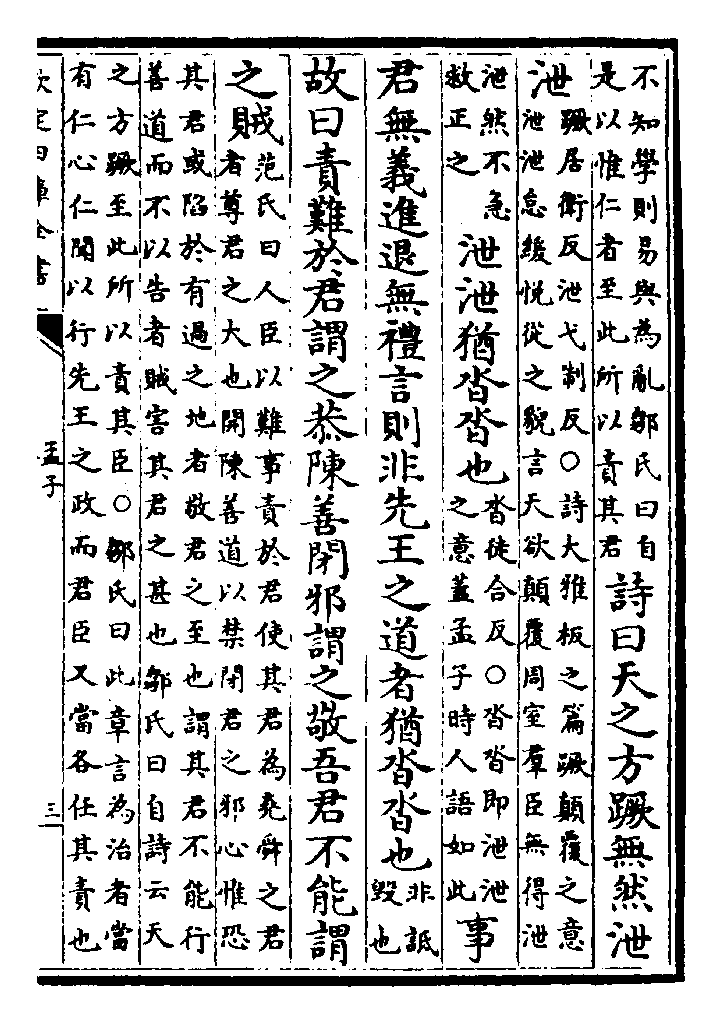 不知學則易與為亂鄒氏曰自
是以惟仁者至此所以責其君
詩曰天之方蹶無然泄
泄
蹶居衛反泄弋制反○詩大雅板之篇蹶顛覆之意
泄泄怠緩悅從之貌言天欲顛覆周室羣臣無得泄
泄然不急
救正之
泄泄猶沓沓也
沓徒合反○沓沓即泄泄
之意蓋孟子時人語如此
事
君無義進退無禮言則非先王之道者猶沓沓也
非詆
毀也
故曰責難於君謂之恭陳善閉邪謂之敬吾君不能謂
之賊
范氏曰人臣以難事責於君使其君為堯舜之君
者尊君之大也開陳善道以禁閉君之邪心惟恐
其君或陷於有過之地者敬君之至也謂其君不能行
善道而不以告者賊害其君之甚也鄒氏曰自詩云天
之方蹶至此所以責其臣○鄒氏曰此章言為治者當
有仁心仁聞以行先王之政而君臣又當各任其責也
欽定四庫全書
孟子
三